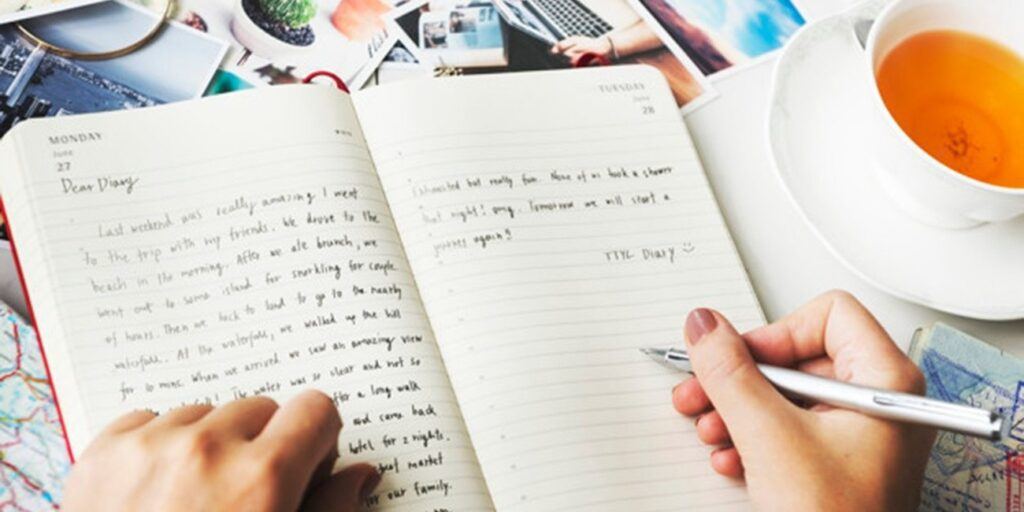 MONDAY
June
27
Dear Diary
Last weekend was really amazing I went
to the trip with my friends. We drove to the
beach in the morning. After we ate brunch, we
went out to some island for snorkling for couple
of hours. Then we back to land to go to the nearby
waterfall. At the waterfall, we walked up the hill
for 10 mins. When we arrived we saw an amazing view
The water was so clear and not so
after a long walk
and came back
hotel for 2 nights.
market
for our family.
TUESDAY
June
28
Exhausted but really fun. None of us took a shower
that night! omg. Tomorrow we will start a
journey again!!
TTYL Diary